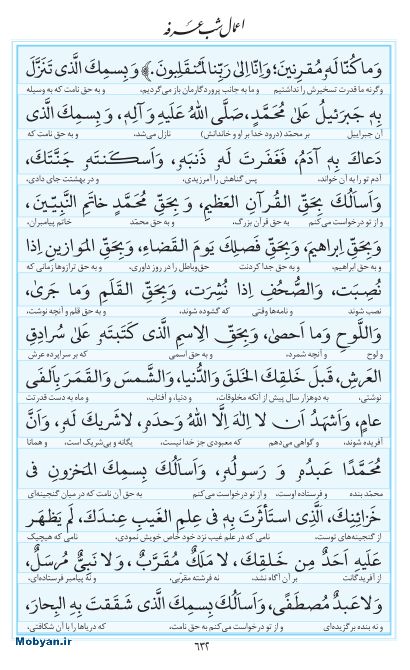 اعمال شب عرفه
وَمَا كُنَّا لَهُ مُقْرِنِينَ؛ وَاِنَّا اِلىٰ رَبِّنَا لَمُنْقَلِبُونَ.﴾ وَبِسْمِكَ الَّذى تَنَزَّلَ
وگرنه ما قدرت تسخیرش را نداشتیم و ما به جانب پروردگارمان باز می‌گردیم، و به حق نامت که به وسیله
بِهِ جَبرَئيلُ عَلىٰ مُحَمَّدٍ، صَلَّى اللهُ عَلَيهِ وَآلِهِ، وَبِسمِكَ الَّذى
آن جبراییل بر محمّد (درود خدا بر او و خاندانش) نازل می‌شد، و به حق نامت که
دَعاكَ بِهِ آدَمُ، فَغَفَرتَ لَهُ ذَنبَهُ، وَاَسكَنتَهُ جَنَّتَكَ،
آدم تو را به آن خواند، پس گناهش را آمرزیدی، و در بهشتت جای دادی،
وَاَسأَلُكَ بِحَقِّ القُرآنِ العَظيمِ، وَبِحَقِّ مُحَمَّدٍ خاتَمِ النَّبِيّينَ،
و از تو درخواست می‌کنم به حق قرآن بزرگ، و به حق محمّد خاتم پیامبران،
وَبِحَقِّ اِبراهيمَ، وَبِحَقِّ فَصلِكَ يَومَ القَضاءِ، وَبِحَقِّ المَوازينِ اِذا
و به حق ابراهیم، و به حق جدا کردنت حق‌وباطل را در روز داوری، و به حق ترازوها زمانی که
نُصِبَت، وَالصُّحُفِ اِذا نُشِرَت، وَبِحَقِّ القَلَمِ وَما جَرىٰ،
نصب شوند و نامه‌ها وقتی که گشوده شوند، و به حق قلم و آنچه نوشت،
وَاللَّوحِ وَما اَحصىٰ، وَبِحَقِّ الاِسمِ الَّذى كَتَبتَهُ عَلىٰ سُرادِقِ
و لوح و آنچه شمرد، و به حق اسمی که بر سراپرده عرش
العَرشِ، قَبلَ خَلقِكَ الخَلقَ وَالدُّنيا، وَالشَّمسَ وَالقَمَرَ بِاَلفَى
نوشتی، به دوهزار سال پیش از آنکه مخلوقات، و دنیا، و آفتاب، و ماه به دست قدرتت
عامٍ، وَاَشهَدُ اَن لا اِلهَ اِلَّا اللهُ وَحدَهُ، لاشَريكَ لَهُ، وَاَنَّ
آفریده شوند، و گواهی می‌دهم که معبودی جز خدا نیست، یگانه و بی‌شریک است، و همانا
مُحَمَّدًا عَبدُهُ وَ رَسولُهُ، وَاَسأَلُكَ بِسمِكَ المَخزونِ فى
محمّد بنده و فرستاده اوست، و از تو درخواست می‌کنم به حق آن نامت که در میان گنجینه‌ای
خَزائِنِكَ، الَّذِى استَأثَرتَ بِهِ فى عِلمِ الغَيبِ عِندَكَ، لَم يَظهَر
از گنجینه‌های توست، نامی که در علم غیب نزد خود خاص خویش نمودی، نامی که هیچیک
عَلَيهِ اَحَدٌ مِن خَلقِكَ، لا مَلَكٌ مُقَرَّبٌ، وَلا نَبِىٌّ مُرسَلٌ،
از آفریدگانت بر آن آگاه نشد، نه فرشته مقربی، و نه پیامبر فرستاده‌ای،
وَلاعَبدٌ مُصطَفًى، وَاَسأَلُكَ بِسمِكَ الَّذى شَقَقتَ بِهِ البِحارَ،
و نه بنده برگزیده‌ای و از تو درخواست می‌کنم به حق نامت، که دریاها را با آن شکافتی،
Mobyan.ir
۶۳۲